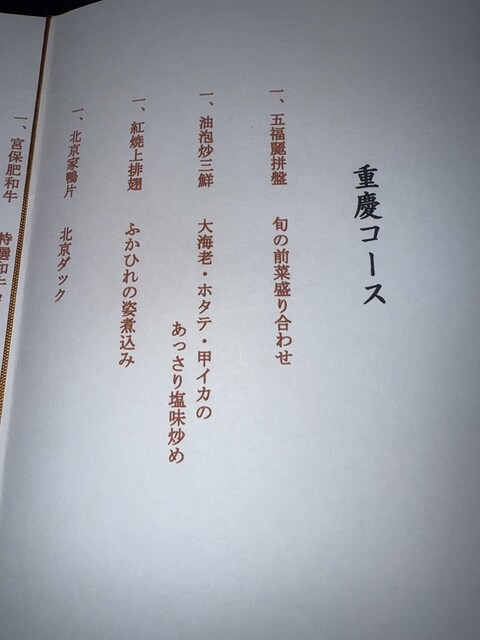 重慶コース
一、五福麗拼盤 旬の前菜盛り合わせ
一、油泡炒三鮮 大海老・ホタテ・甲イカの
あっさり塩味炒め
一、紅焼上排翅 ふかひれの姿煮込み
一、北京家鴨片 北京ダック
一、宮保肥和牛 特選和牛